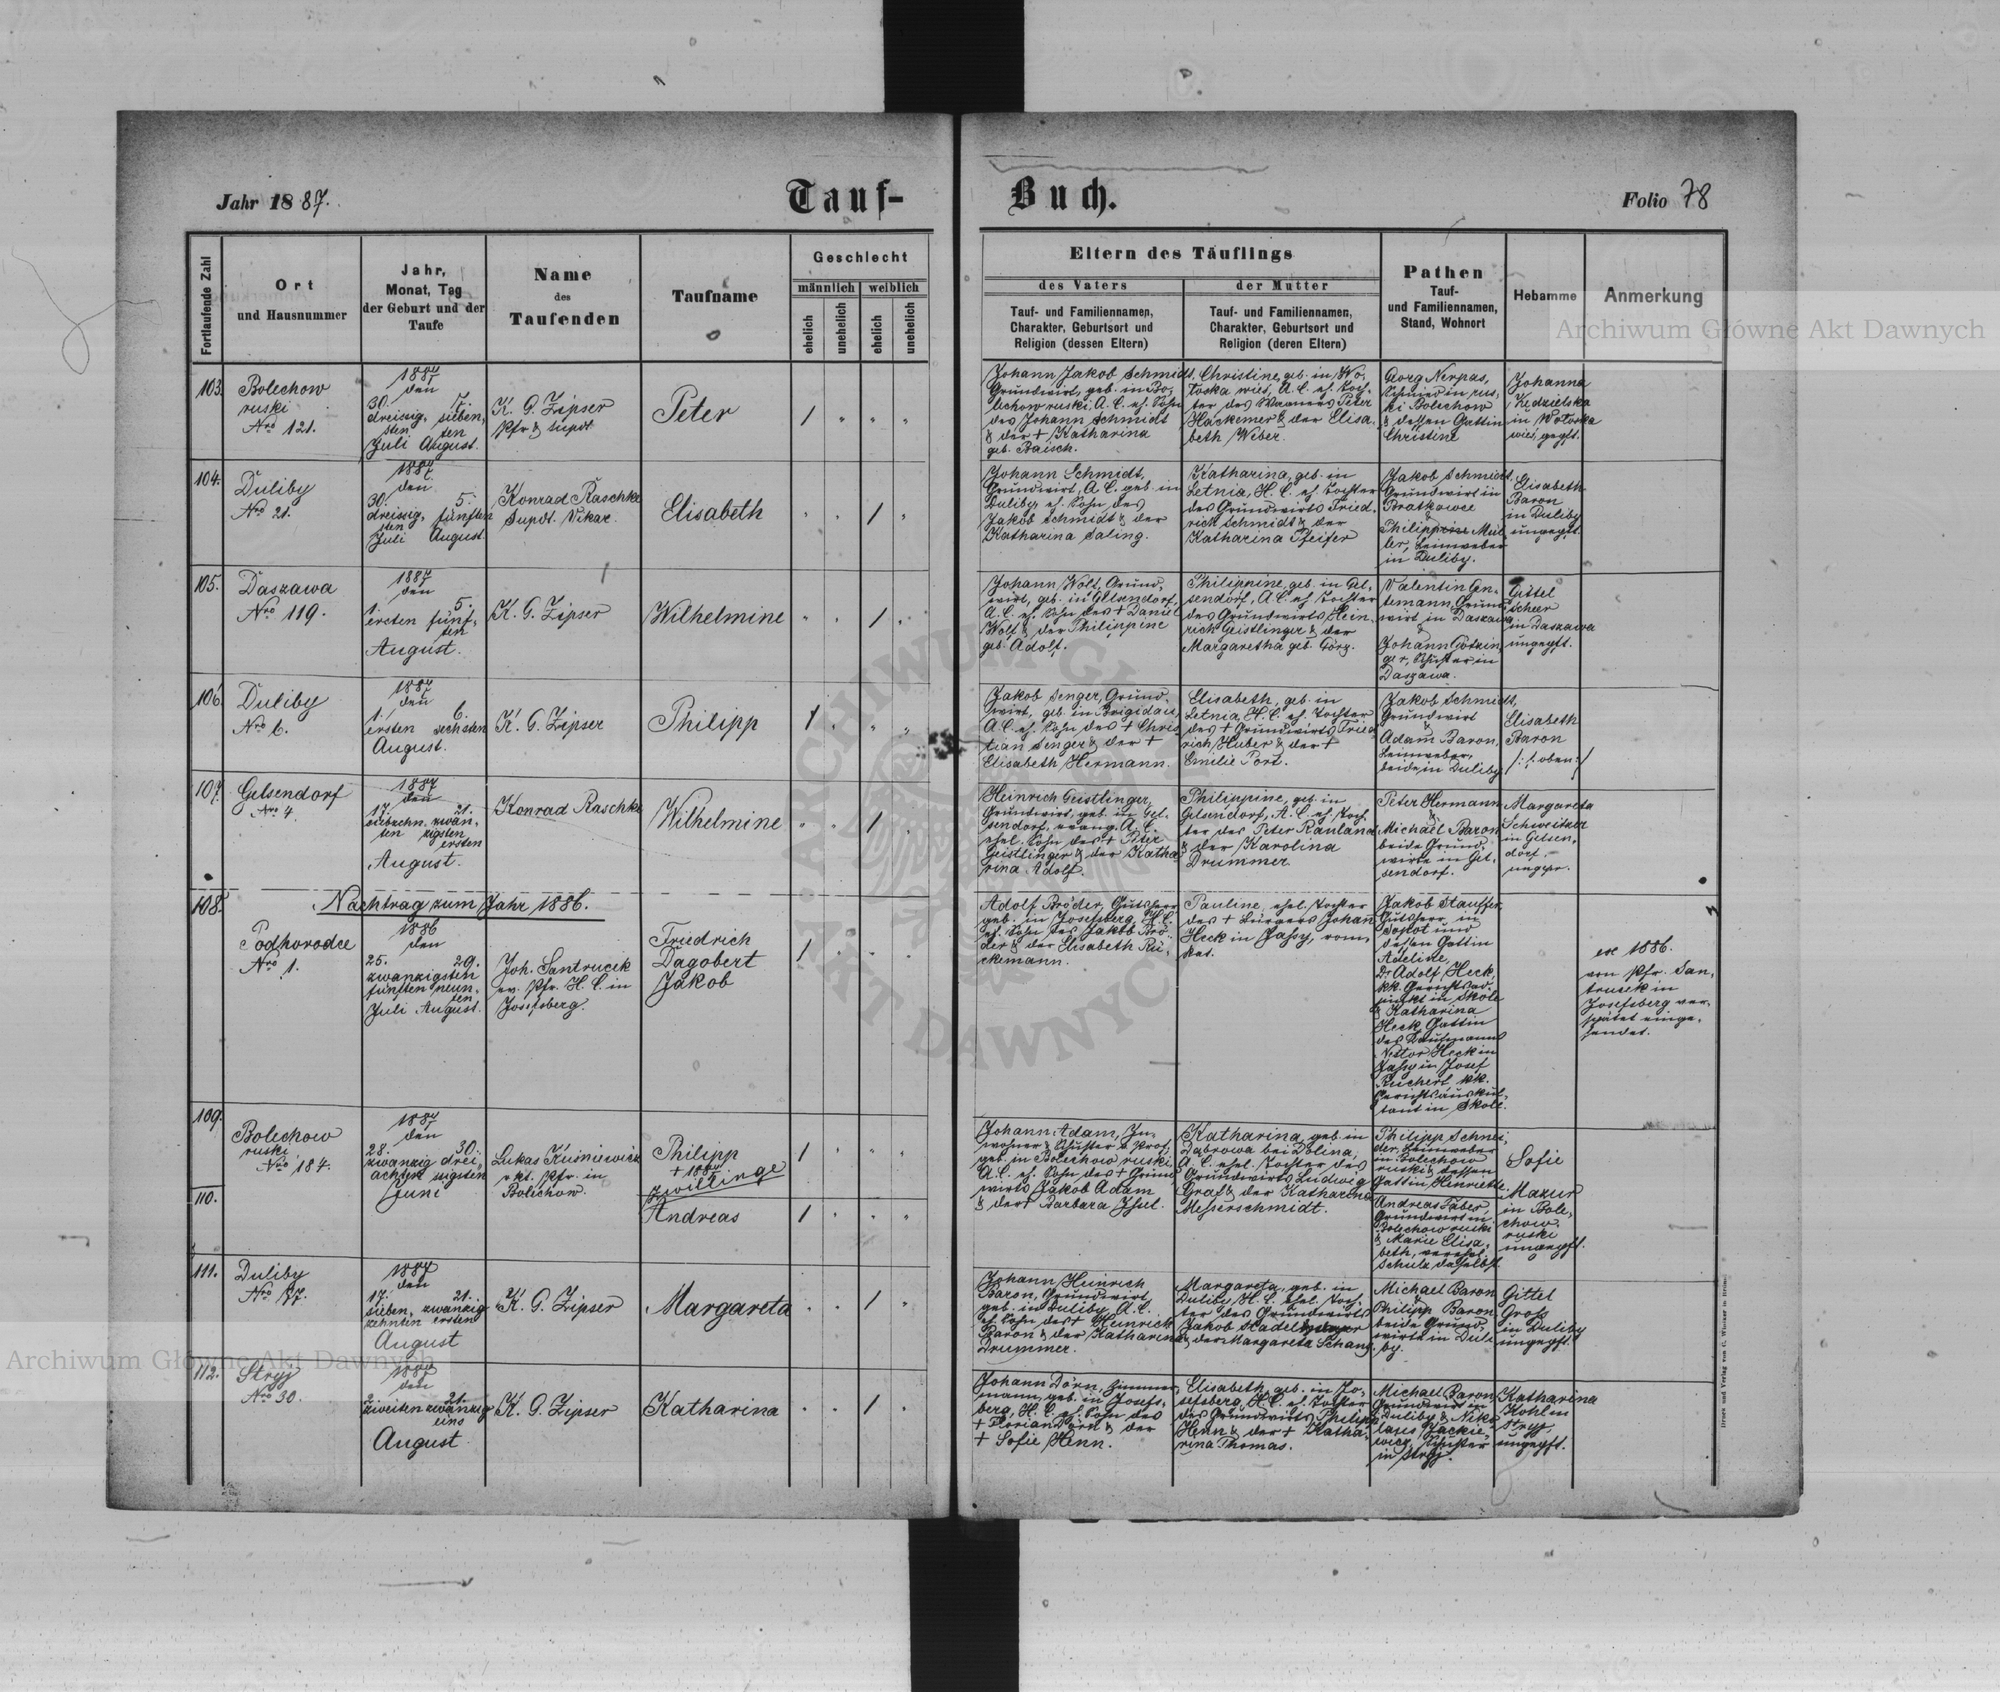 Jahr 1887.
Tauf-
Buch.
Folio 78
Fortlaufende Zahl
Ort
und Hausnummer
Jahr,
Monat, Tag
der Geburt und der
Taufe
Name
des
Taufenden
Taufname
Geschlecht
männlich
weiblich
ehelich
unehelich
ehelich
unehelich
Eltern des Täuflings
des Vaters
Tauf- und Familiennamen,
Charakter, Geburtsort und
Religion (dessen Eltern)
der Mutter
Tauf- und Familiennamen,
Charakter, Geburtsort und
Religion (deren Eltern)
Pathen
Tauf-
und Familiennamen,
Stand, Wohnort
Hebamme
Anmerkung
103.
Bolechow
ruski
Nro 121.
1887
den
30. 7.
dreissig, sieben,
sten ten
Juli August.
K. G. Zipser
Pfr & Supdt
Peter
Johann Jakob Schmidt,
Grundwirt, geb. in Bo-
lechow ruski, A. C. eh. Sohn
des Johann Schmidt
& der + Katharina
geb. Baisch.
Christine, geb. in Wo-
loska wies, A. C. eh. Toch-
ter des Peter
Hackemer & der Elisa-
beth Weber.
Georg Nerpas,
Schmied in rus-
ki Bolechow
& dessen Gattin
Christine
Johanna
Kedzielska
in Woloska
wies, gepft.
104.
Duliby
Nro 21.
1887
den
30. 5.
dreissig, fünften
sten
Juli August.
Konrad Raschke
Supdt. Vikar.
Elisabeth
Johann Schmidt,
Grundwirt, A. C. geb. in
Duliby, eh. Sohn des
Jakob Schmidt & der
Katharina Saling.
Katharina, geb. in
Letnia, H. C. eh. Tochter
des Grundwirts Fried-
rich Schmidt & der
Katharina Pfeifer
Jakob Schmidt,
Grundwirt in
Bratkowce
&
Philippine Mül-
ler, Leinweber
in Duliby.
Elisabeth
Baron
in Duliby
ungepft.
105.
Daszawa
Nro 119.
1887
den
1. 5.
ersten fünf-
ten
August.
K. G. Zipser
Wilhelmine
Johann Wolf, Grund-
wirt, geb. in Gelsendorf,
A. C. eh. Sohn des + Daniel
Wolf & der Philippine
geb. Adolf.
Philippine, geb. in Gel-
sendorf, A. C. eh. Tochter
des Grundwirts Hein-
rich Geistlinger & der
Margaretha geb. Görz.
Valentin Gen-
temann, Grund-
wirt in Daszawa
&
Schuster in
Daszawa.
Gittel
Scheer
in Daszawa
ungepft.
106.
Duliby
Nro 6.
1887
den
1. 6.
ersten sechsten
August.
K. G. Zipser
Philipp
Jakob Senger, Grund-
wirt, geb. in Brigidau,
A. C. eh. Sohn des + Chris-
tian Senger & der +
Elisabeth Hermann.
Elisabeth, geb. in
Letnia, H. C. eh. Tochter
des + Grundwirts Fried-
rich Huber & der +
Emilie Port.
Jakob Schmidt,
Grundwirt
&
Adam Baron,
Leinweber,
beide in Duliby
Elisabeth
Baron
/: s. oben :/
107.
Gelsendorf
Nro 4.
1887
den
17. 21.
siebzehn- zwan-
ten zigsten
ersten
August.
Konrad Raschke
Wilhelmine
Heinrich Geistlinger,
Grundwirt, geb. in Gel-
sendorf, evang. A. C.
ehel. Sohn des + Peter
Geistlinger & der Katha-
rina Adolf.
Philippine, geb. in
Gelsendorf, A. C. eh. Toch-
ter des Peter Rauland
& der Karolina
Drummer.
Peter Hermann
&
Michael Baron
beide Grund-
wirte in Gel-
sendorf.
Margareta
Schweitzer
in Gelsen-
dorf,
ungepr.
108.
Nachtrag zum Jahr 1886.
Podhorodce
Nro 1.
1886
den
25. 29.
zwanzigsten
fünften neun-
ten
Juli August.
Joh. Santrucek
ev. Pfr. H. C. in
Josefsberg.
Friedrich
Dagobert
Jakob
Adolf Bröder, Gutsherr
geb. in Josefsberg, H. C.
eh. Sohn des Jakob Brö-
der & der Elisabeth Rü-
ckemann.
Pauline, ehel. Tochter
des + Bürgers Johan
Heck in Jassy, rom.
kat.
Jakob Stauffer,
Gutsherr in
und
dessen Gattin
Adeline,
Dr Adolf Heck,
kk. Gerichtsad-
junkt in Skole
& Katharina
Heck Gattin
des Kaufmanns
Nestor Heck in
Jassy u. Josef
Reichert, kk.
Gerichtsauskul-
tant in Skole.
ex 1886.
von Pfr. San-
trucek in
Josefsberg ver-
spätet einge-
sendet.
109.
Bolechow
ruski,
Nro 184.
1887
den
28. 30.
zwanzig drei-
achten ssigsten
Juni
Lukas Kusniewicz
rkt. Pfr. in
Bolechow.
Philipp
+ 1887
Zwillinge
110.
Andreas
Johann Adam, In-
wohner & Schuster v. Prof.,
geb. in Bolechow ruski,
A. C. eh. Sohn des + Grund-
wirts Jakob Adam
& der + Barbara Issel.
Katharina, geb. in
Dąbrowa bei Dolina,
A. C. ehel. Tochter des
Grundwirts Ludwig
Graf & der Katharina
Messerschmidt.
Philipp Schnei-
der, Leinweber
in Bolechow
ruski & dessen
Gattin Henriette.
Andreas Faber,
Grundwirt in
Bolechow ruski
& Marie Elisa-
beth, verehel.
Schulz daselbst.
Sofie
Mazur
in Bole-
chow
ruski
ungepft.
111.
Duliby
Nro 17.
1887
den
17. 21.
sieben- zwanzig
zehnten ersten
August
K. G. Zipser
Margareta
Johann Heinrich
Baron, Grundwirt,
geb. in Duliby, A. C.
eh. Sohn des + Heinrich
Baron & der Katharina
Drummer.
Margareta, geb. in
Duliby, H. C. ehel. Toch-
ter des Grundwirts
Jakob
& der Margareta Schanz.
Michael Baron
&
Philipp Baron
beide Grund-
wirte in Duli-
by.
Gittel
Gross
in Duliby
ungepft.
112.
Stryj
Nro 30.
1887
den
2. 21.
zweiten zwanzig
eins
August
K. G. Zipser
Katharina
Johann Dörn, Zimmer-
mann, geb. in Josefs-
berg, H. C. eh. Sohn des
+ Florian Dörn & der
+ Sofie Henn.
Elisabeth, geb. in Jo-
sefsberg, H. C. eh. Tochter
des Grundwirts Philipp
Henn & der + Katha-
rina Thomas.
Michael Baron,
Grundwirt in
Duliby & Niko-
laus Jackie-
wicz, Schuster
in Stryj.
Katharina
Kohl in
Stryj,
ungepft.
Archiwum Główne Akt Dawnych
Archiwum Główne Akt Dawnych
ARCHIWUM GŁÓWNE AKT DAWNYCH